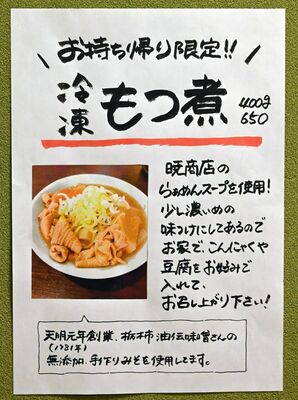 お持ち帰り限定!!
冷凍 もつ煮 400g
650
暁商店の
らぁめんスープを使用!
少し濃いめの
味つけにしてあるので
お家で、こんにゃくや
豆腐をお好みで
入れて、
お召し上がり下さい!
天明元年創業、栃木市 油伝味噌さんの
(1781年)
無添加 手作りみそを使用してます。